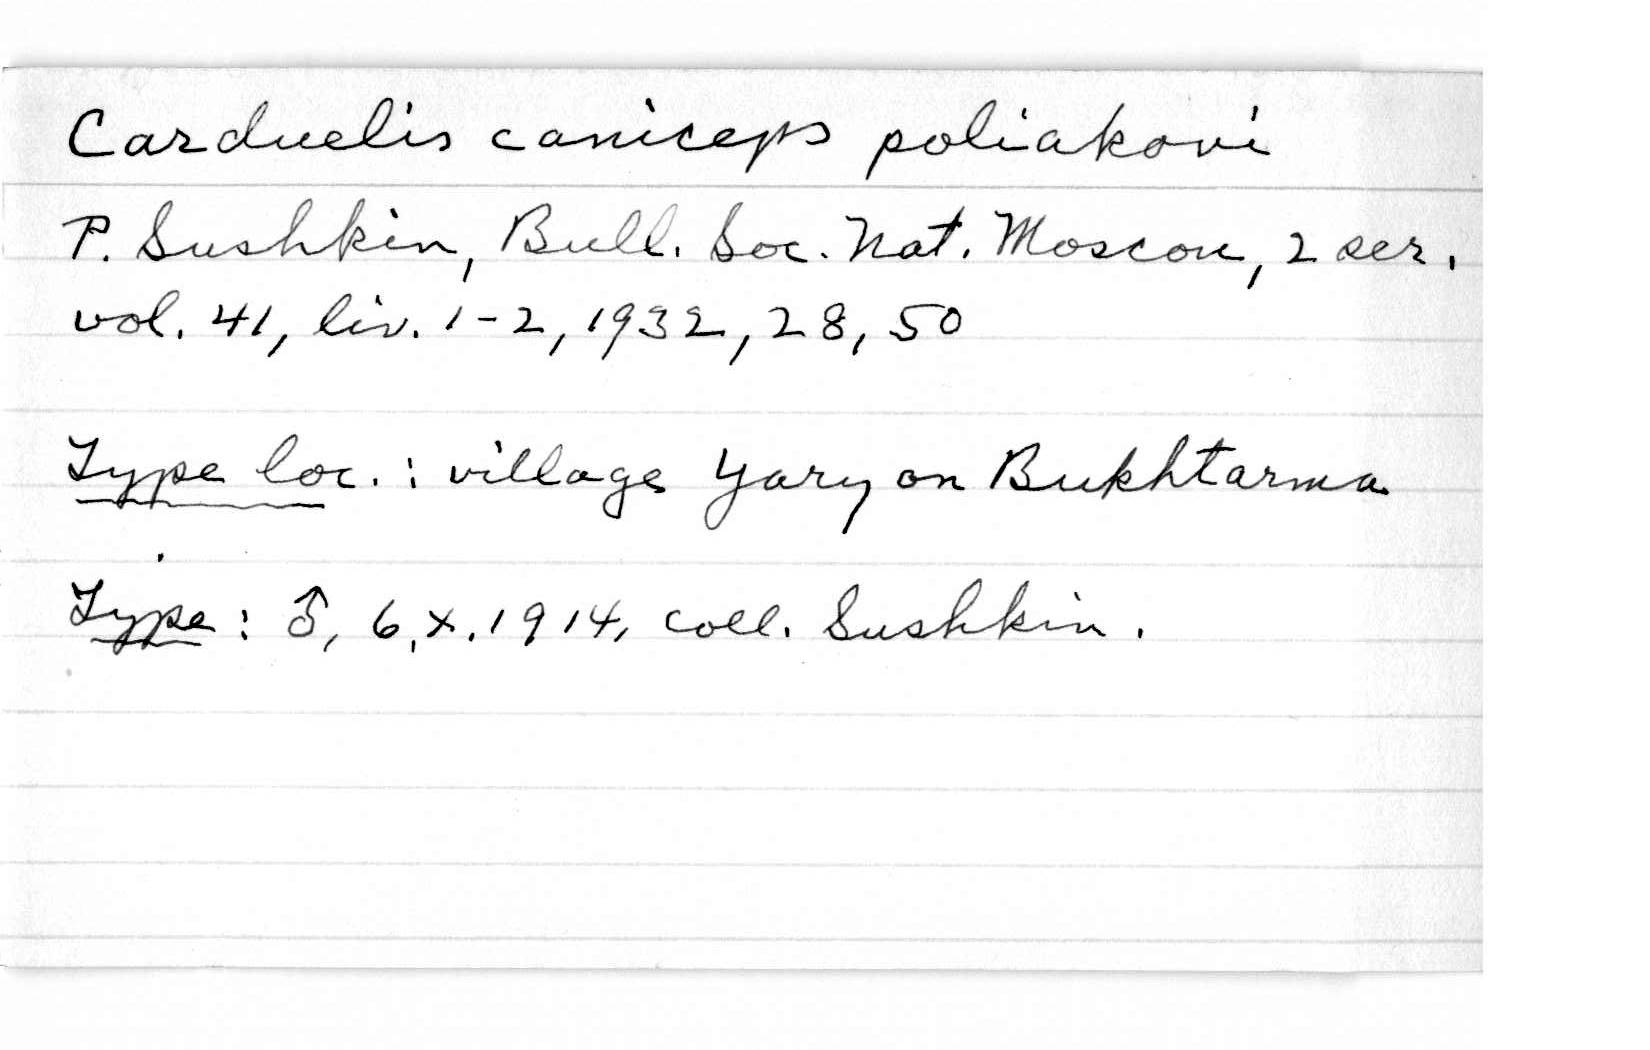 Carduelis caniceps poliakovi
P. Sushkin, Bull. Soc. Nat. Moscou, 2 ser.
vol. 41, liv. 1-2, 1932, 28, 50
Type loc. : village Yary on Bukhtarma
Type : ♂, 6, x, 1914, coll. Sushkin.